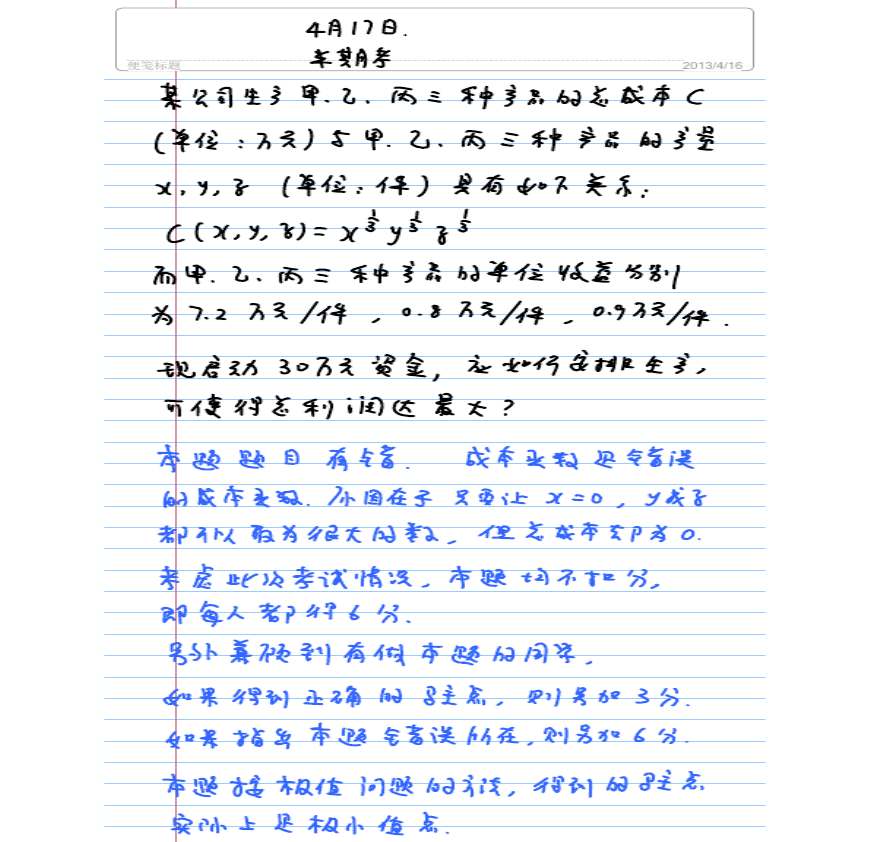 4月17日.
半期考
便笺标题
2013/4/16
某公司生产甲.乙、丙三种产品的总成本C
(单位:万元)与甲.乙、丙三种产品的产量
x,y,z (单位:件)具有如下关系:
C(x,y,z)=x^{1/3} y^{1/3} z^{1/3}
而甲.乙、丙三种产品的单位收益分别
为7.2万元/件,0.8万元/件,0.9万元/件.
现启动30万元资金,应如何安排生产,
可使得总利润达最大?
本题题目有错. 成本函数是错误
的成本函数.原因在于只要让x=0,y或z
都可以取为很大的数,但总成本却为0.
考虑此次考试情况,本题均不扣分,
即每人都得6分.
另外兼顾到有做本题的同学,
如果得到正确的驻点,则另加3分.
如果指出本题错误所在,则另加6分.
本题按极值问题的方法,得到的驻点
实际上是极小值点.